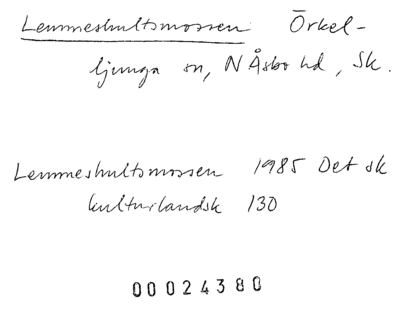 Lemmeshultsmossen Örkel-
ljunga sn, N Åsbo hd, Sk.
Lemmeshultsmossen 1985 Det sk
kulturlandsk 130
00024380